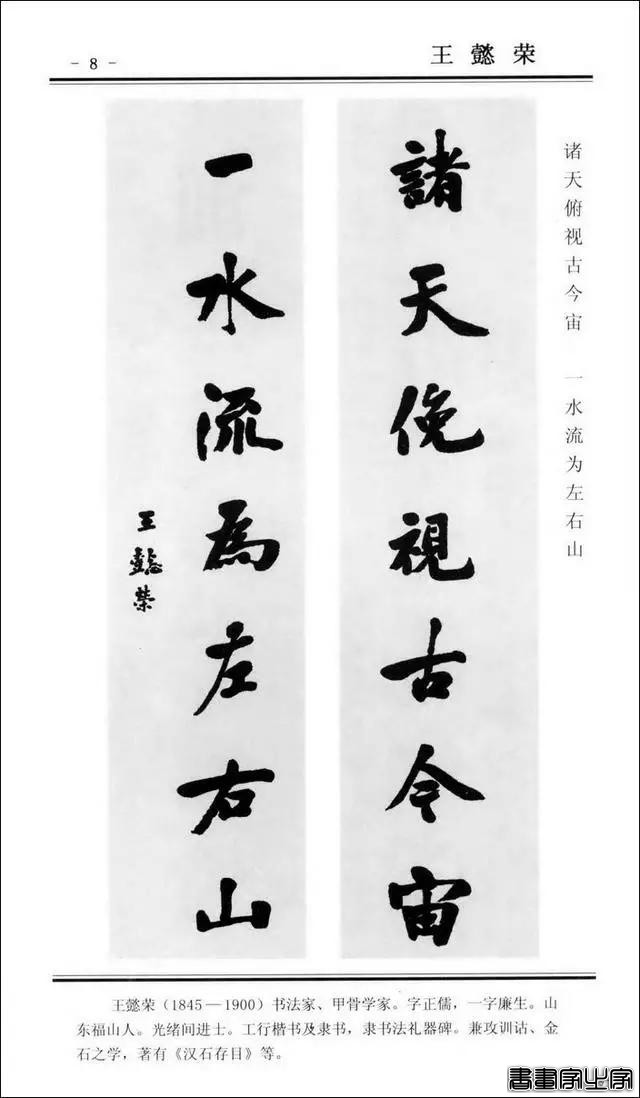 - 8 -
王懿荣
諸天俛視古今宙
一水流為左右山
王懿榮
诸天俯视古今宙 一水流为左右山
王懿荣（1845—1900）书法家、甲骨学家。字正儒，一字廉生。山
东福山人。光绪间进士。工行楷书及隶书，隶书法礼器碑。兼攻训诂、金
石之学，著有《汉石存目》等。
書畫家之字